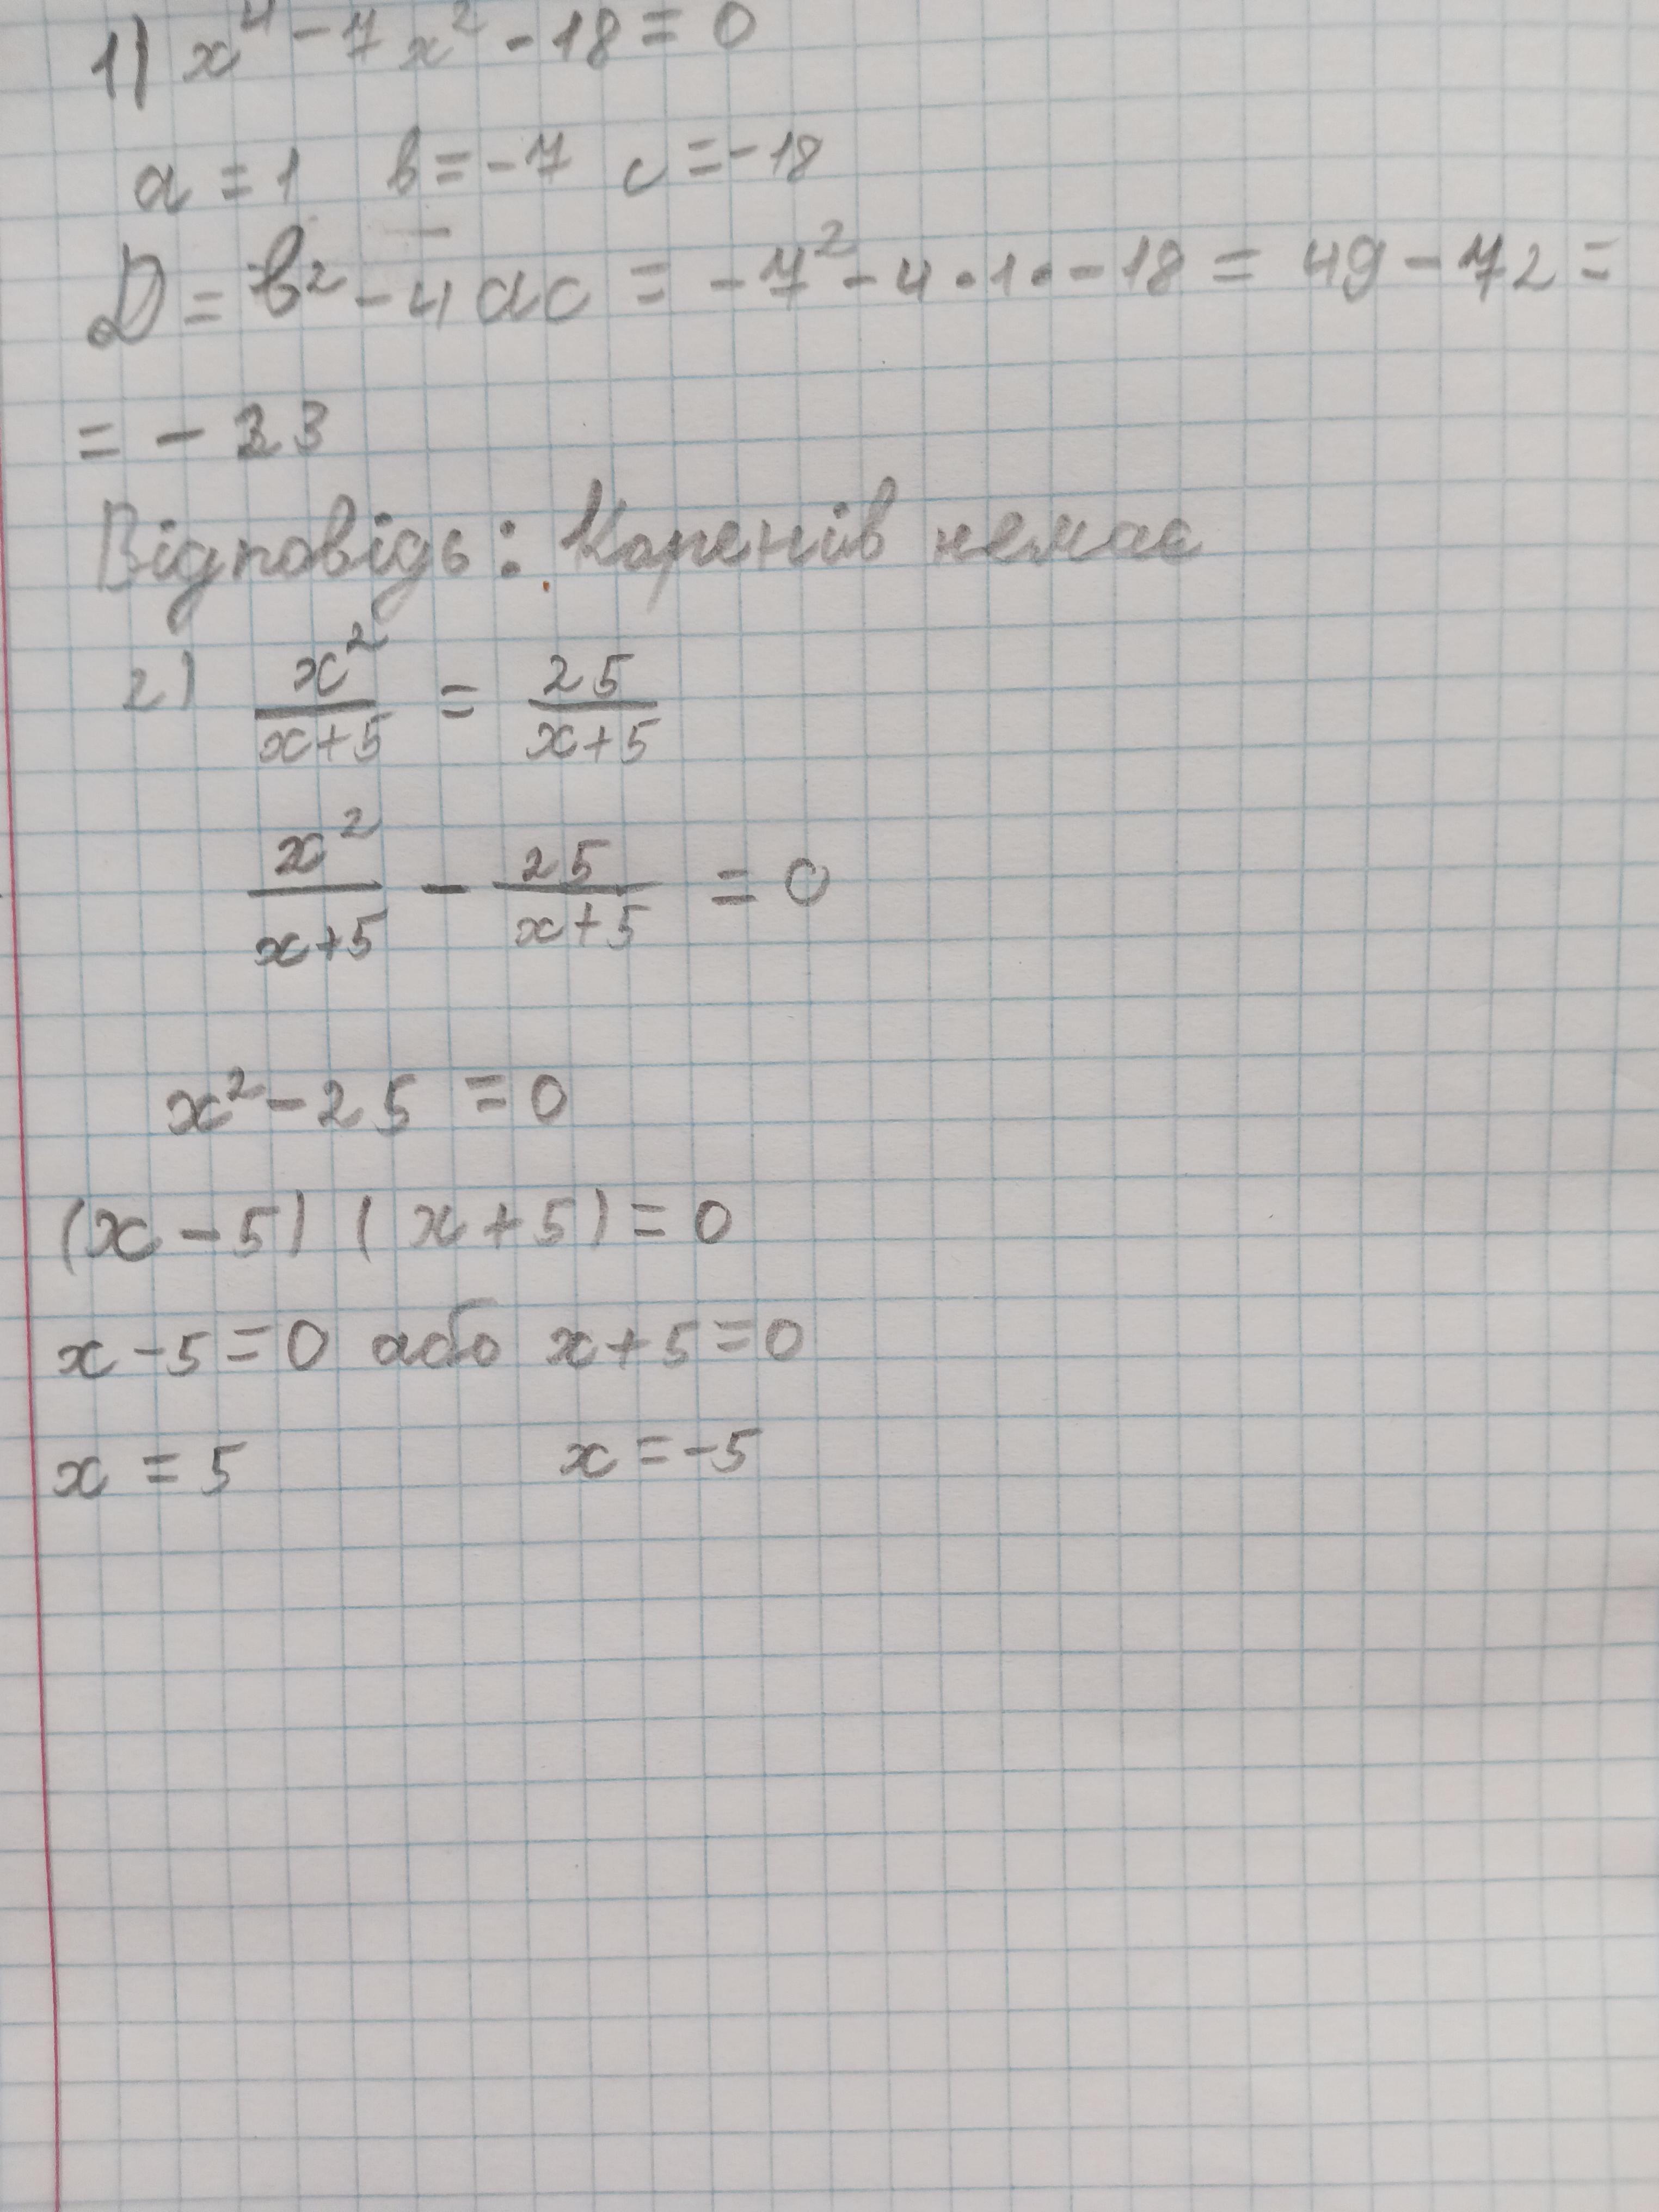 1) x⁴ - 7x² - 18 = 0
a = 1 b = -7 c = -18
D = b² - 4ac = -7² - 4·1·-18 = 49 - 72 =
= - 23
Відповідь: Коренів немає
2) x²/x+5 = 25/x+5
x²/x+5 - 25/x+5 = 0
x² - 25 = 0
(x - 5) (x + 5) = 0
x - 5 = 0 або x + 5 = 0
x = 5 x = -5